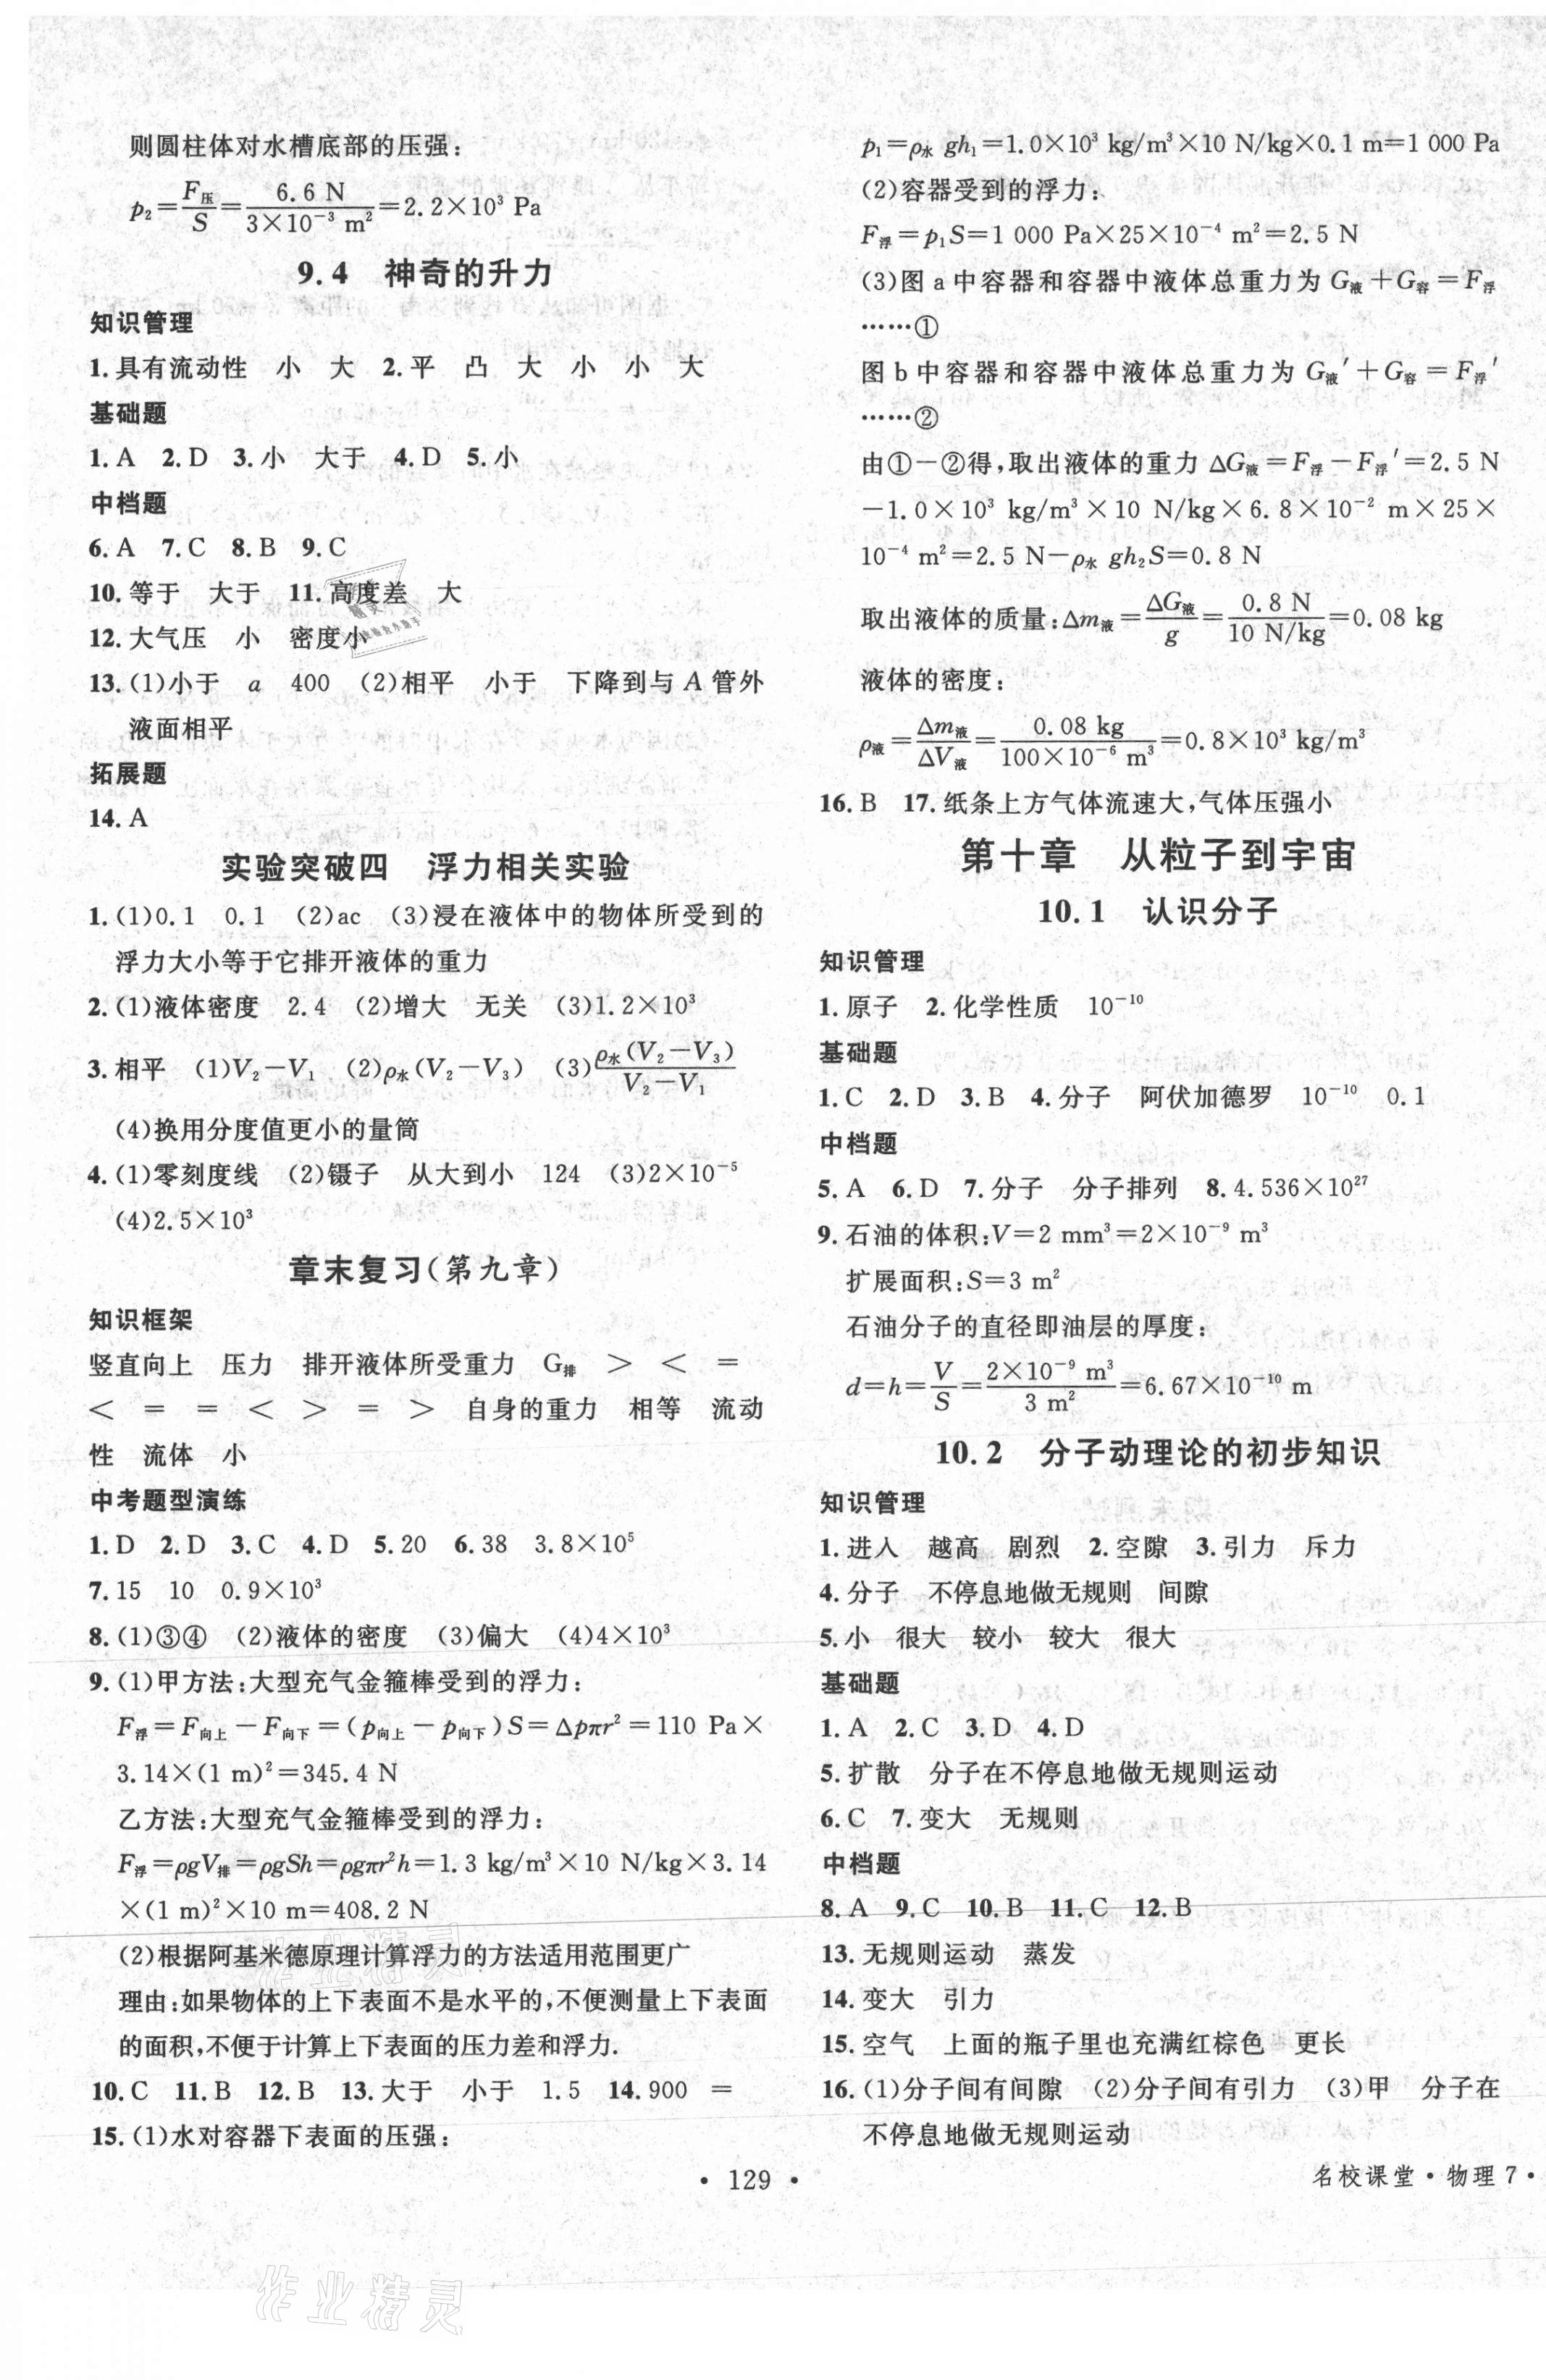 则圆柱体对水槽底部的压强：
p₂=F压/S=6.6 N/(3×10⁻³ m²)=2.2×10³ Pa
9.4 神奇的升力
知识管理
1.具有流动性 小 大 2.平 凸 大 小 小 大
基础题
1.A 2.D 3.小 大于 4.D 5.小
中档题
6.A 7.C 8.B 9.C
10.等于 大于 11.高度差 大
12.大气压 小 密度小
13.(1)小于 a 400 (2)相平 小于 下降到与 A 管外
液面相平
拓展题
14.A
实验突破四 浮力相关实验
1.(1)0.1 0.1 (2)ac (3)浸在液体中的物体所受到的
浮力大小等于它排开液体的重力
2.(1)液体密度 2.4 (2)增大 无关 (3)1.2×10³
3.相平 (1)V₂-V₁ (2)ρ水(V₂-V₃) (3)ρ水(V₂-V₃)/(V₂-V₁)
(4)换用分度值更小的量筒
4.(1)零刻度线 (2)镊子 从大到小 124 (3)2×10⁻⁵
(4)2.5×10³
章末复习(第九章)
知识框架
竖直向上 压力 排开液体所受重力 G排 > < =
< = = < > = > 自身的重力 相等 流动
性 流体 小
中考题型演练
1.D 2.D 3.C 4.D 5.20 6.38 3.8×10⁵
7.15 10 0.9×10³
8.(1)③④ (2)液体的密度 (3)偏大 (4)4×10³
9.(1)甲方法：大型充气金箍棒受到的浮力：
F浮=F向上-F向下=(p向上-p向下)S=Δpπr²=110 Pa×
3.14×(1 m)²=345.4 N
乙方法：大型充气金箍棒受到的浮力：
F浮=ρgV排=ρgSh=ρgπr²h=1.3 kg/m³×10 N/kg×3.14
×(1 m)²×10 m=408.2 N
(2)根据阿基米德原理计算浮力的方法适用范围更广
理由：如果物体的上下表面不是水平的，不便测量上下表面
的面积，不便于计算上下表面的压力差和浮力.
10.C 11.B 12.B 13.大于 小于 1.5 14.900 =
15.(1)水对容器下表面的压强：
p₁=ρ水gh₁=1.0×10³ kg/m³×10 N/kg×0.1 m=1 000 Pa
(2)容器受到的浮力：
F浮=p₁S=1 000 Pa×25×10⁻⁴ m²=2.5 N
(3)图 a 中容器和容器中液体总重力为 G液+G容=F浮
……①
图 b 中容器和容器中液体总重力为 G液′+G容=F浮′
……②
由①-②得，取出液体的重力 ΔG液=F浮-F浮′=2.5 N
-1.0×10³ kg/m³×10 N/kg×6.8×10⁻² m×25×
10⁻⁴ m²=2.5 N-ρ水gh₂S=0.8 N
取出液体的质量：Δm液=ΔG液/g=0.8 N/(10 N/kg)=0.08 kg
液体的密度：
ρ液=Δm液/ΔV液=0.08 kg/(100×10⁻⁶ m³)=0.8×10³ kg/m³
16.B 17.纸条上方气体流速大，气体压强小
第十章 从粒子到宇宙
10.1 认识分子
知识管理
1.原子 2.化学性质 10⁻¹⁰
基础题
1.C 2.D 3.B 4.分子 阿伏加德罗 10⁻¹⁰ 0.1
中档题
5.A 6.D 7.分子 分子排列 8.4.536×10²⁷
9.石油的体积：V=2 mm³=2×10⁻⁹ m³
扩展面积：S=3 m²
石油分子的直径即油层的厚度：
d=h=V/S=2×10⁻⁹ m³/(3 m²)=6.67×10⁻¹⁰ m
10.2 分子动理论的初步知识
知识管理
1.进入 越高 剧烈 2.空隙 3.引力 斥力
4.分子 不停息地做无规则 间隙
5.小 很大 较小 较大 很大
基础题
1.A 2.C 3.D 4.D
5.扩散 分子在不停息地做无规则运动
6.C 7.变大 无规则
中档题
8.A 9.C 10.B 11.C 12.B
13.无规则运动 蒸发
14.变大 引力
15.空气 上面的瓶子里也充满红棕色 更长
16.(1)分子间有间隙 (2)分子间有引力 (3)甲 分子在
不停息地做无规则运动
• 129 •
名校课堂·物理7·
作业精灵